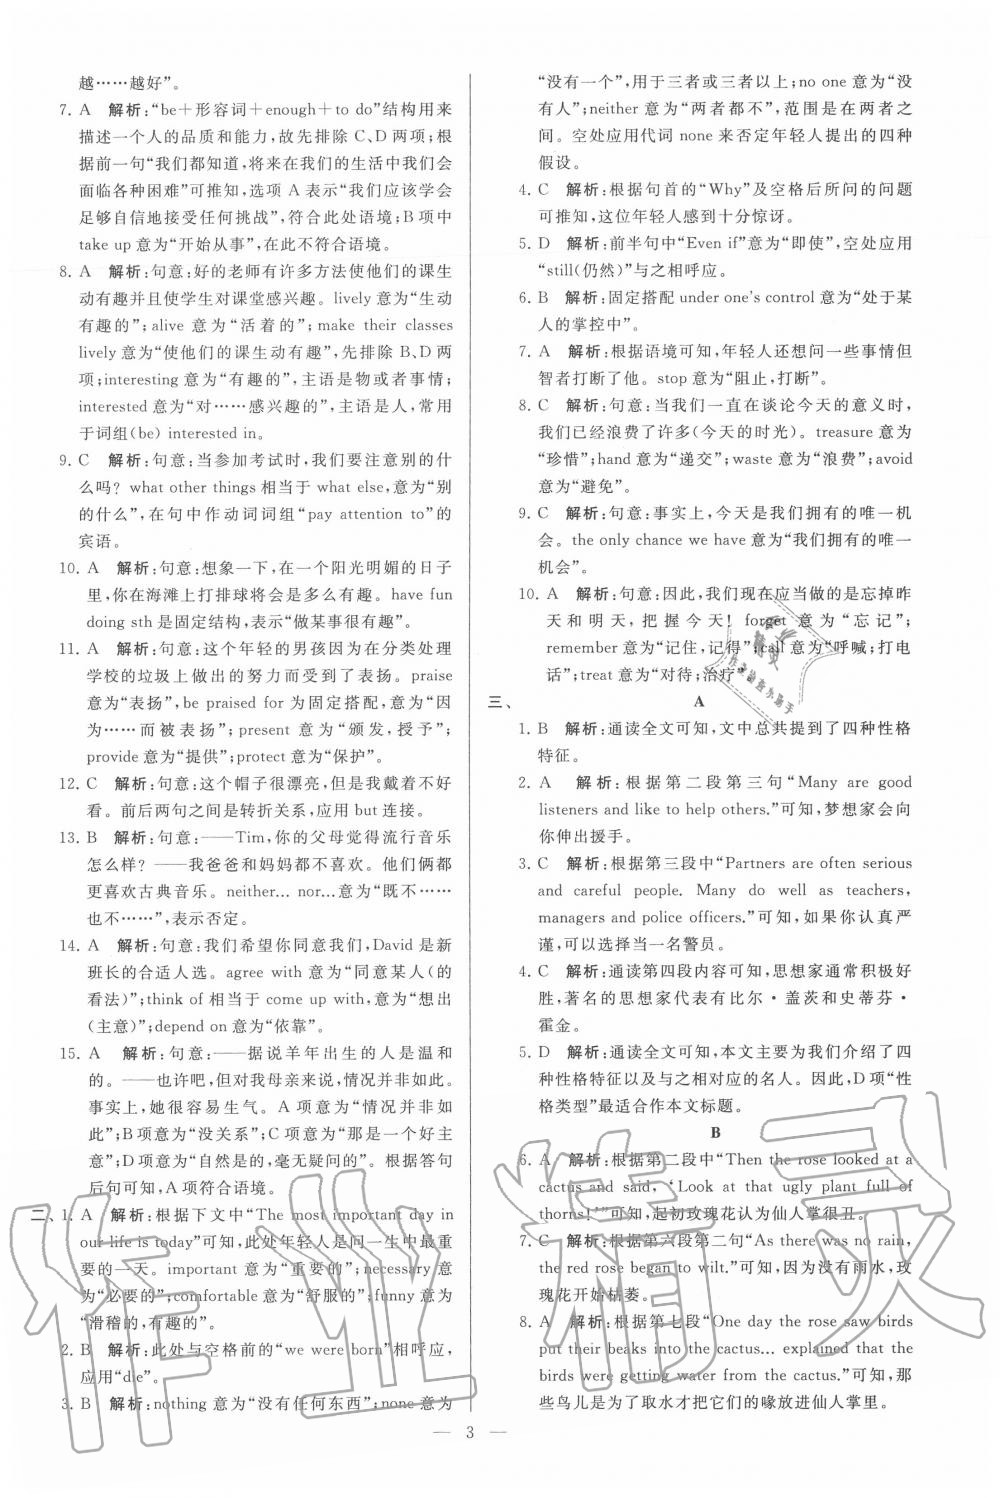 越……越好”。
7. A　解析:“be＋形容词＋enough＋to do”结构用来
描述一个人的品质和能力，故先排除 C、D 两项；根
据前一句“我们都知道，将来在我们的生活中我们会
面临各种困难”可推知，选项 A 表示“我们应该学会
足够自信地接受任何挑战”，符合此处语境；B 项中
take up 意为“开始从事”，在此不符合语境。
8. A　解析:句意:好的老师有许多方法使他们的课生
动有趣并且使学生对课堂感兴趣。lively 意为“生动
有趣的”；alive 意为“活着的”；make their classes
lively 意为“使他们的课生动有趣”，先排除 B、D 两
项；interesting 意为“有趣的”，主语是物或者事情；
interested 意为“对……感兴趣的”，主语是人，常用
于词组(be) interested in。
9. C　解析:句意:当参加考试时，我们要注意别的什
么吗？what other things 相当于 what else，意为“别
的什么”，在句中作动词词组“pay attention to”的
宾语。
10. A　解析:句意:想象一下，在一个阳光明媚的日子
里，你在海滩上打排球将会是多么有趣。have fun
doing sth 是固定结构，表示“做某事很有趣”。
11. A　解析:句意:这个年轻的男孩因为在分类处理
学校的垃圾上做出的努力而受到了表扬。praise
意为“表扬”，be praised for 为固定搭配，意为“因
为……而被表扬”；present 意为“颁发，授予”；
provide 意为“提供”；protect 意为“保护”。
12. C　解析:句意:这个帽子很漂亮，但是我戴着不好
看。前后两句之间是转折关系，应用 but 连接。
13. B　解析:句意:——Tim，你的父母觉得流行音乐
怎么样？——我爸爸和妈妈都不喜欢。他们俩都
更喜欢古典音乐。neither... nor...意为“既不……
也不……”，表示否定。
14. A　解析:句意:我们希望你同意我们，David 是新
班长的合适人选。agree with 意为“同意某人(的
看法)”；think of 相当于 come up with，意为“想出
(主意)”；depend on 意为“依靠”。
15. A　解析:句意:——据说羊年出生的人是温和
的。——也许吧，但对我母亲来说，情况并非如此。
事实上，她很容易生气。A 项意为“情况并非如
此”；B 项意为“没关系”；C 项意为“那是一个好主
意”；D 项意为“自然是的，毫无疑问的”。根据答句
后句可知，A 项符合语境。
二、1. A　解析:根据下文中“The most important day in
our life is today”可知，此处年轻人是问一生中最重
要的一天。important 意为“重要的”；necessary 意
为“必要的”；comfortable 意为“舒服的”；funny 意为
“滑稽的，有趣的”。
2. B　解析:此处与空格前的“we were born”相呼应，
应用“die”。
3. B　解析:nothing 意为“没有任何东西”；none 意为
“没有一个”，用于三者或三者以上；no one 意为“没
有人”；neither 意为“两者都不”，范围是在两者之
间。空处应用代词 none 来否定年轻人提出的四种
假设。
4. C　解析:根据句首的“Why”及空格后所问的问题
可推知，这位年轻人感到十分惊讶。
5. D　解析:前半句中“Even if”意为“即使”，空处应用
“still(仍然)”与之相呼应。
6. B　解析:固定搭配 under one's control 意为“处于某
人的掌控中”。
7. A　解析:根据语境可知，年轻人还想问一些事情但
智者打断了他。stop 意为“阻止，打断”。
8. C　解析:句意:当我们一直在谈论今天的意义时，
我们已经浪费了许多(今天的时光)。treasure 意为
“珍惜”；hand 意为“递交”；waste 意为“浪费”；avoid
意为“避免”。
9. C　解析:句意:事实上，今天是我们拥有的唯一机
会。the only chance we have 意为“我们拥有的唯一
机会”。
10. A　解析:句意:因此，我们现在应当做的是忘掉昨
天和明天，把握今天！forget 意为“忘记”；
remember 意为“记住，记得”；call 意为“呼喊；打电
话”；treat 意为“对待；治疗”。
三、A
1. B　解析:通读全文可知，文中总共提到了四种性格
特征。
2. A　解析:根据第二段第三句“Many are good
listeners and like to help others.”可知，梦想家会向
你伸出援手。
3. C　解析:根据第三段中“Partners are often serious
and careful people. Many do well as teachers,
managers and police officers.”可知，如果你认真严
谨，可以选择当一名警员。
4. C　解析:通读第四段内容可知，思想家通常积极好
胜，著名的思想家代表有比尔·盖茨和史蒂芬·
霍金。
5. D　解析:通读全文可知，本文主要为我们介绍了四
种性格特征以及与之相对应的名人。因此，D 项“性
格类型”最适合作本文标题。
B
6. A　解析:根据第二段中“Then the rose looked at a
cactus and said, ‘Look at that ugly plant full of
thorns!’”可知，起初玫瑰花认为仙人掌很丑。
7. C　解析:根据第六段第二句“As there was no rain,
the red rose began to wilt.”可知，因为没有雨水，玫
瑰花开始枯萎。
8. A　解析:根据第七段“One day the rose saw birds
put their beaks into the cactus... explained that the
birds were getting water from the cactus.”可知，这
些鸟儿是为了取水才把它们的喙放进仙人掌里。
— 3 —
作业精灵